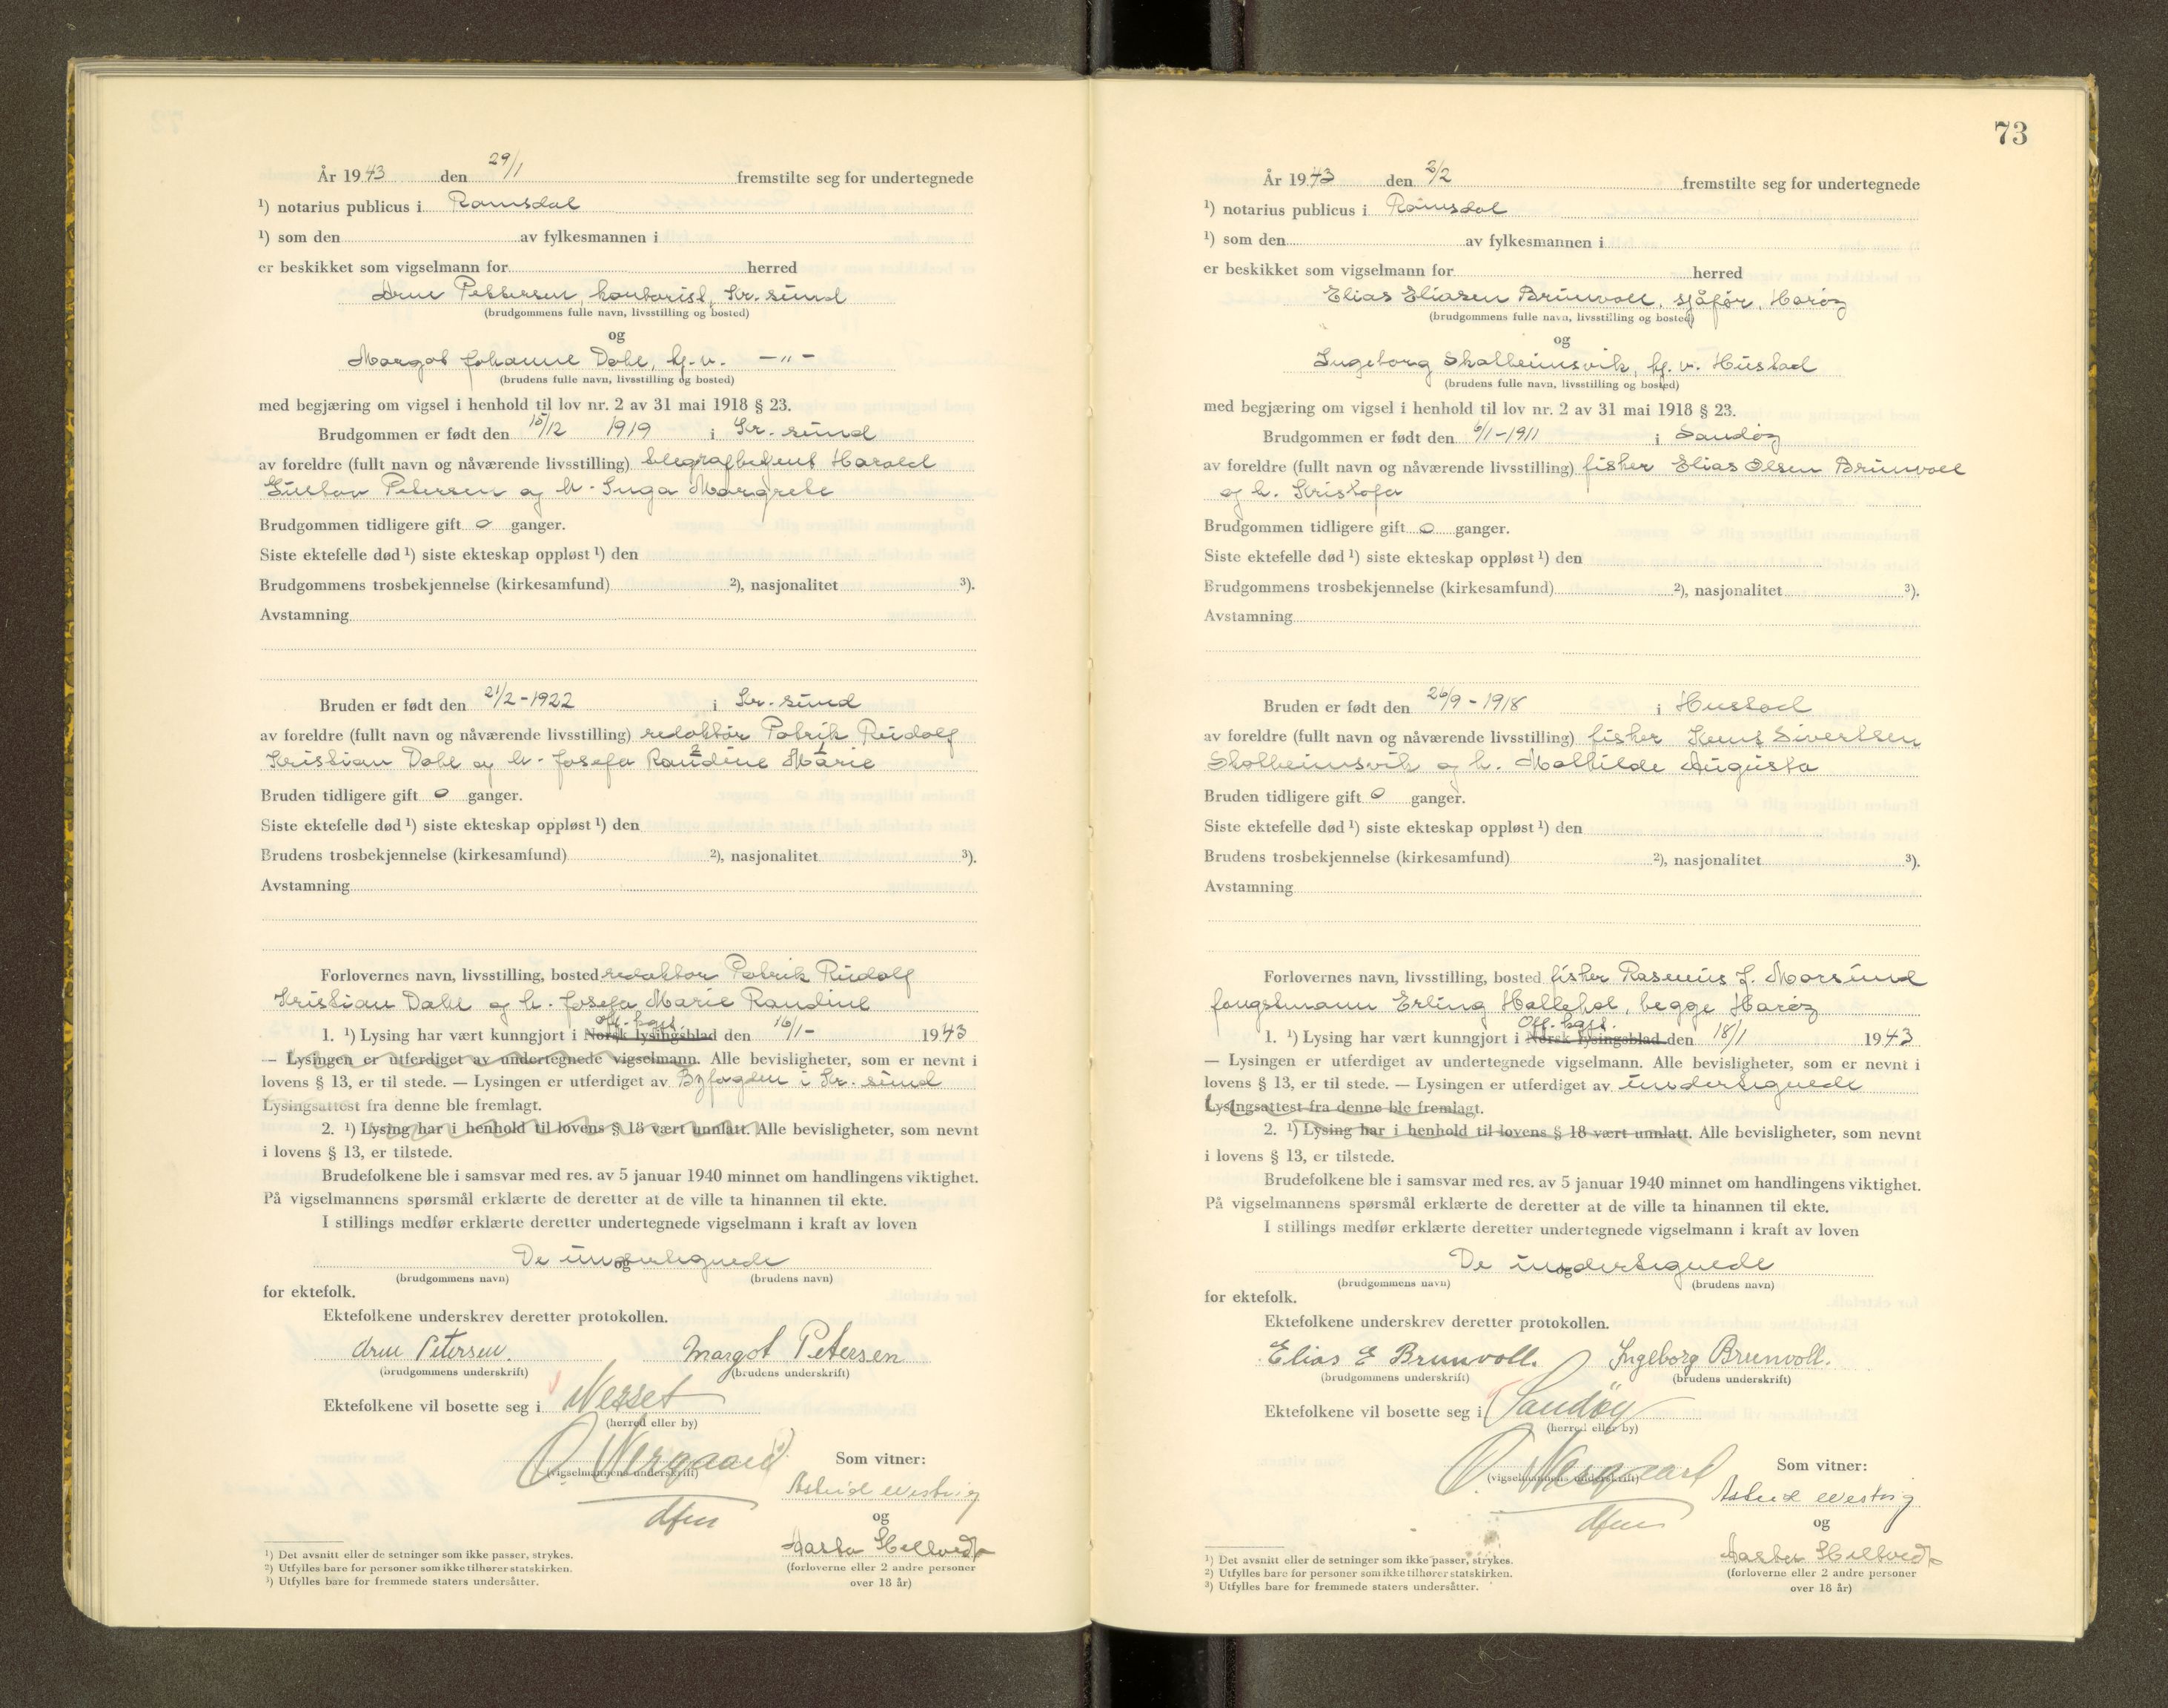 År 1943 den 29/1 fremstilte seg for undertegnede
¹) notarius publicus i Romsdal
¹) som den av fylkesmannen i
er beskikket som vigselmann for herred
Arne Pettersen, kontorist, Kr. sund
(brudgommens fulle navn, livsstilling og bosted)
og
Margot Johanne Dahl, hj. v. —"—
(brudens fulle navn, livsstilling og bosted)
med begjæring om vigsel i henhold til lov nr. 2 av 31 mai 1918 § 23.
Brudgommen er født den /12 1919 i Kr. sund
av foreldre (fullt navn og nåværende livsstilling) telegrafbetjent Harold
Gustav Petersen og h. Inga Margrete
Brudgommen tidligere gift 0 ganger.
Siste ektefelle død ¹) siste ekteskap oppløst ¹) den
Brudgommens trosbekjennelse (kirkesamfund) ²), nasjonalitet ³).
Avstamning
Bruden er født den 21/2 - 1922 i Kr. sund
av foreldre (fullt navn og nåværende livsstilling) redaktør Patrik Rudolf
Kristian Dahl og h. Josefa Randine Marie
Bruden tidligere gift 0 ganger.
Siste ektefelle død ¹) siste ekteskap oppløst ¹) den
Brudens trosbekjennelse (kirkesamfund) ²), nasjonalitet ³).
Avstamning
Forlovernes navn, livsstilling, bosted redaktør Patrik Rudolf
Kristian Dahl og h. Josefa Marie Randine
Off. kgjl.
1. ¹) Lysing har vært kunngjort i Norsk lysingsblad den 16/1 - 1943
— Lysingen er utferdiget av undertegnede vigselmann. Alle bevisligheter, som er nevnt i
lovens § 13, er til stede. — Lysingen er utferdiget av Byfogden i Kr. sund
Lysingsattest fra denne ble fremlagt.
2. ¹) Lysing har i henhold til lovens § 18 vært unnlatt. Alle bevisligheter, som nevnt
i lovens § 13, er tilstede.
Brudefolkene ble i samsvar med res. av 5 januar 1940 minnet om handlingens viktighet.
På vigselmannens spørsmål erklærte de deretter at de ville ta hinannen til ekte.
I stillings medfør erklærte deretter undertegnede vigselmann i kraft av loven
De undertegnede
og
(brudgommens navn) (brudens navn)
for ektefolk.
Ektefolkene underskrev deretter protokollen.
Arne Petersen. Margot Petersen
(brudgommens underskrift) (brudens underskrift)
Ektefolkene vil bosette seg i Nesset
(herred eller by)
O. Nergaard
(vigselmannens underskrift)
dfm
Som vitner:
Astrid Westvig
og
Aasta Hellvedt
(forloverne eller 2 andre personer
over 18 år)
¹) Det avsnitt eller de setninger som ikke passer, strykes.
²) Utfylles bare for personer som ikke tilhører statskirken.
³) Utfylles bare for fremmede staters undersåtter.
73
År 1943 den 2/2 fremstilte seg for undertegnede
¹) notarius publicus i Romsdal
¹) som den av fylkesmannen i
er beskikket som vigselmann for herred
Elias Eliasen Brunvoll, sjåfør, Harøy
(brudgommens fulle navn, livsstilling og bosted)
og
Ingeborg Skalleimsvik, hj. v. Hustad
(brudens fulle navn, livsstilling og bosted)
med begjæring om vigsel i henhold til lov nr. 2 av 31 mai 1918 § 23.
Brudgommen er født den 6/1 - 1911 i Sandøy
av foreldre (fullt navn og nåværende livsstilling) fisker Elias Olsen Brunvoll
og h. Kristofa
Brudgommen tidligere gift 0 ganger.
Siste ektefelle død ¹) siste ekteskap oppløst ¹) den
Brudgommens trosbekjennelse (kirkesamfund) ²), nasjonalitet ³).
Avstamning
Bruden er født den 26/9 - 1918 i Hustad
av foreldre (fullt navn og nåværende livsstilling) fisker Knut Sivertsen
Skalleimsvik og h. Mathilde Augusta
Bruden tidligere gift 0 ganger.
Siste ektefelle død ¹) siste ekteskap oppløst ¹) den
Brudens trosbekjennelse (kirkesamfund) ²), nasjonalitet ³).
Avstamning
Forlovernes navn, livsstilling, bosted fisker Rasmus J. Morsund
fangstmann Erling , begge Harøy
Off. kgjl.
1. ¹) Lysing har vært kunngjort i Norsk lysingsblad den 18/1 1943
— Lysingen er utferdiget av undertegnede vigselmann. Alle bevisligheter, som er nevnt i
lovens § 13, er til stede. — Lysingen er utferdiget av undertegnede
Lysingsattest fra denne ble fremlagt.
2. ¹) Lysing har i henhold til lovens § 18 vært unnlatt. Alle bevisligheter, som nevnt
i lovens § 13, er tilstede.
Brudefolkene ble i samsvar med res. av 5 januar 1940 minnet om handlingens viktighet.
På vigselmannens spørsmål erklærte de deretter at de ville ta hinannen til ekte.
I stillings medfør erklærte deretter undertegnede vigselmann i kraft av loven
De undertegnede
og
(brudgommens navn) (brudens navn)
for ektefolk.
Ektefolkene underskrev deretter protokollen.
Elias E Brunvoll. Ingeborg Brunvoll.
(brudgommens underskrift) (brudens underskrift)
Ektefolkene vil bosette seg i Sandøy
(herred eller by)
O. Nergaard
(vigselmannens underskrift)
dfm
Som vitner:
Astrid Westvig
og
Aasta Hellvedt
(forloverne eller 2 andre personer
over 18 år)
¹) Det avsnitt eller de setninger som ikke passer, strykes.
²) Utfylles bare for personer som ikke tilhører statskirken.
³) Utfylles bare for fremmede staters undersåtter.